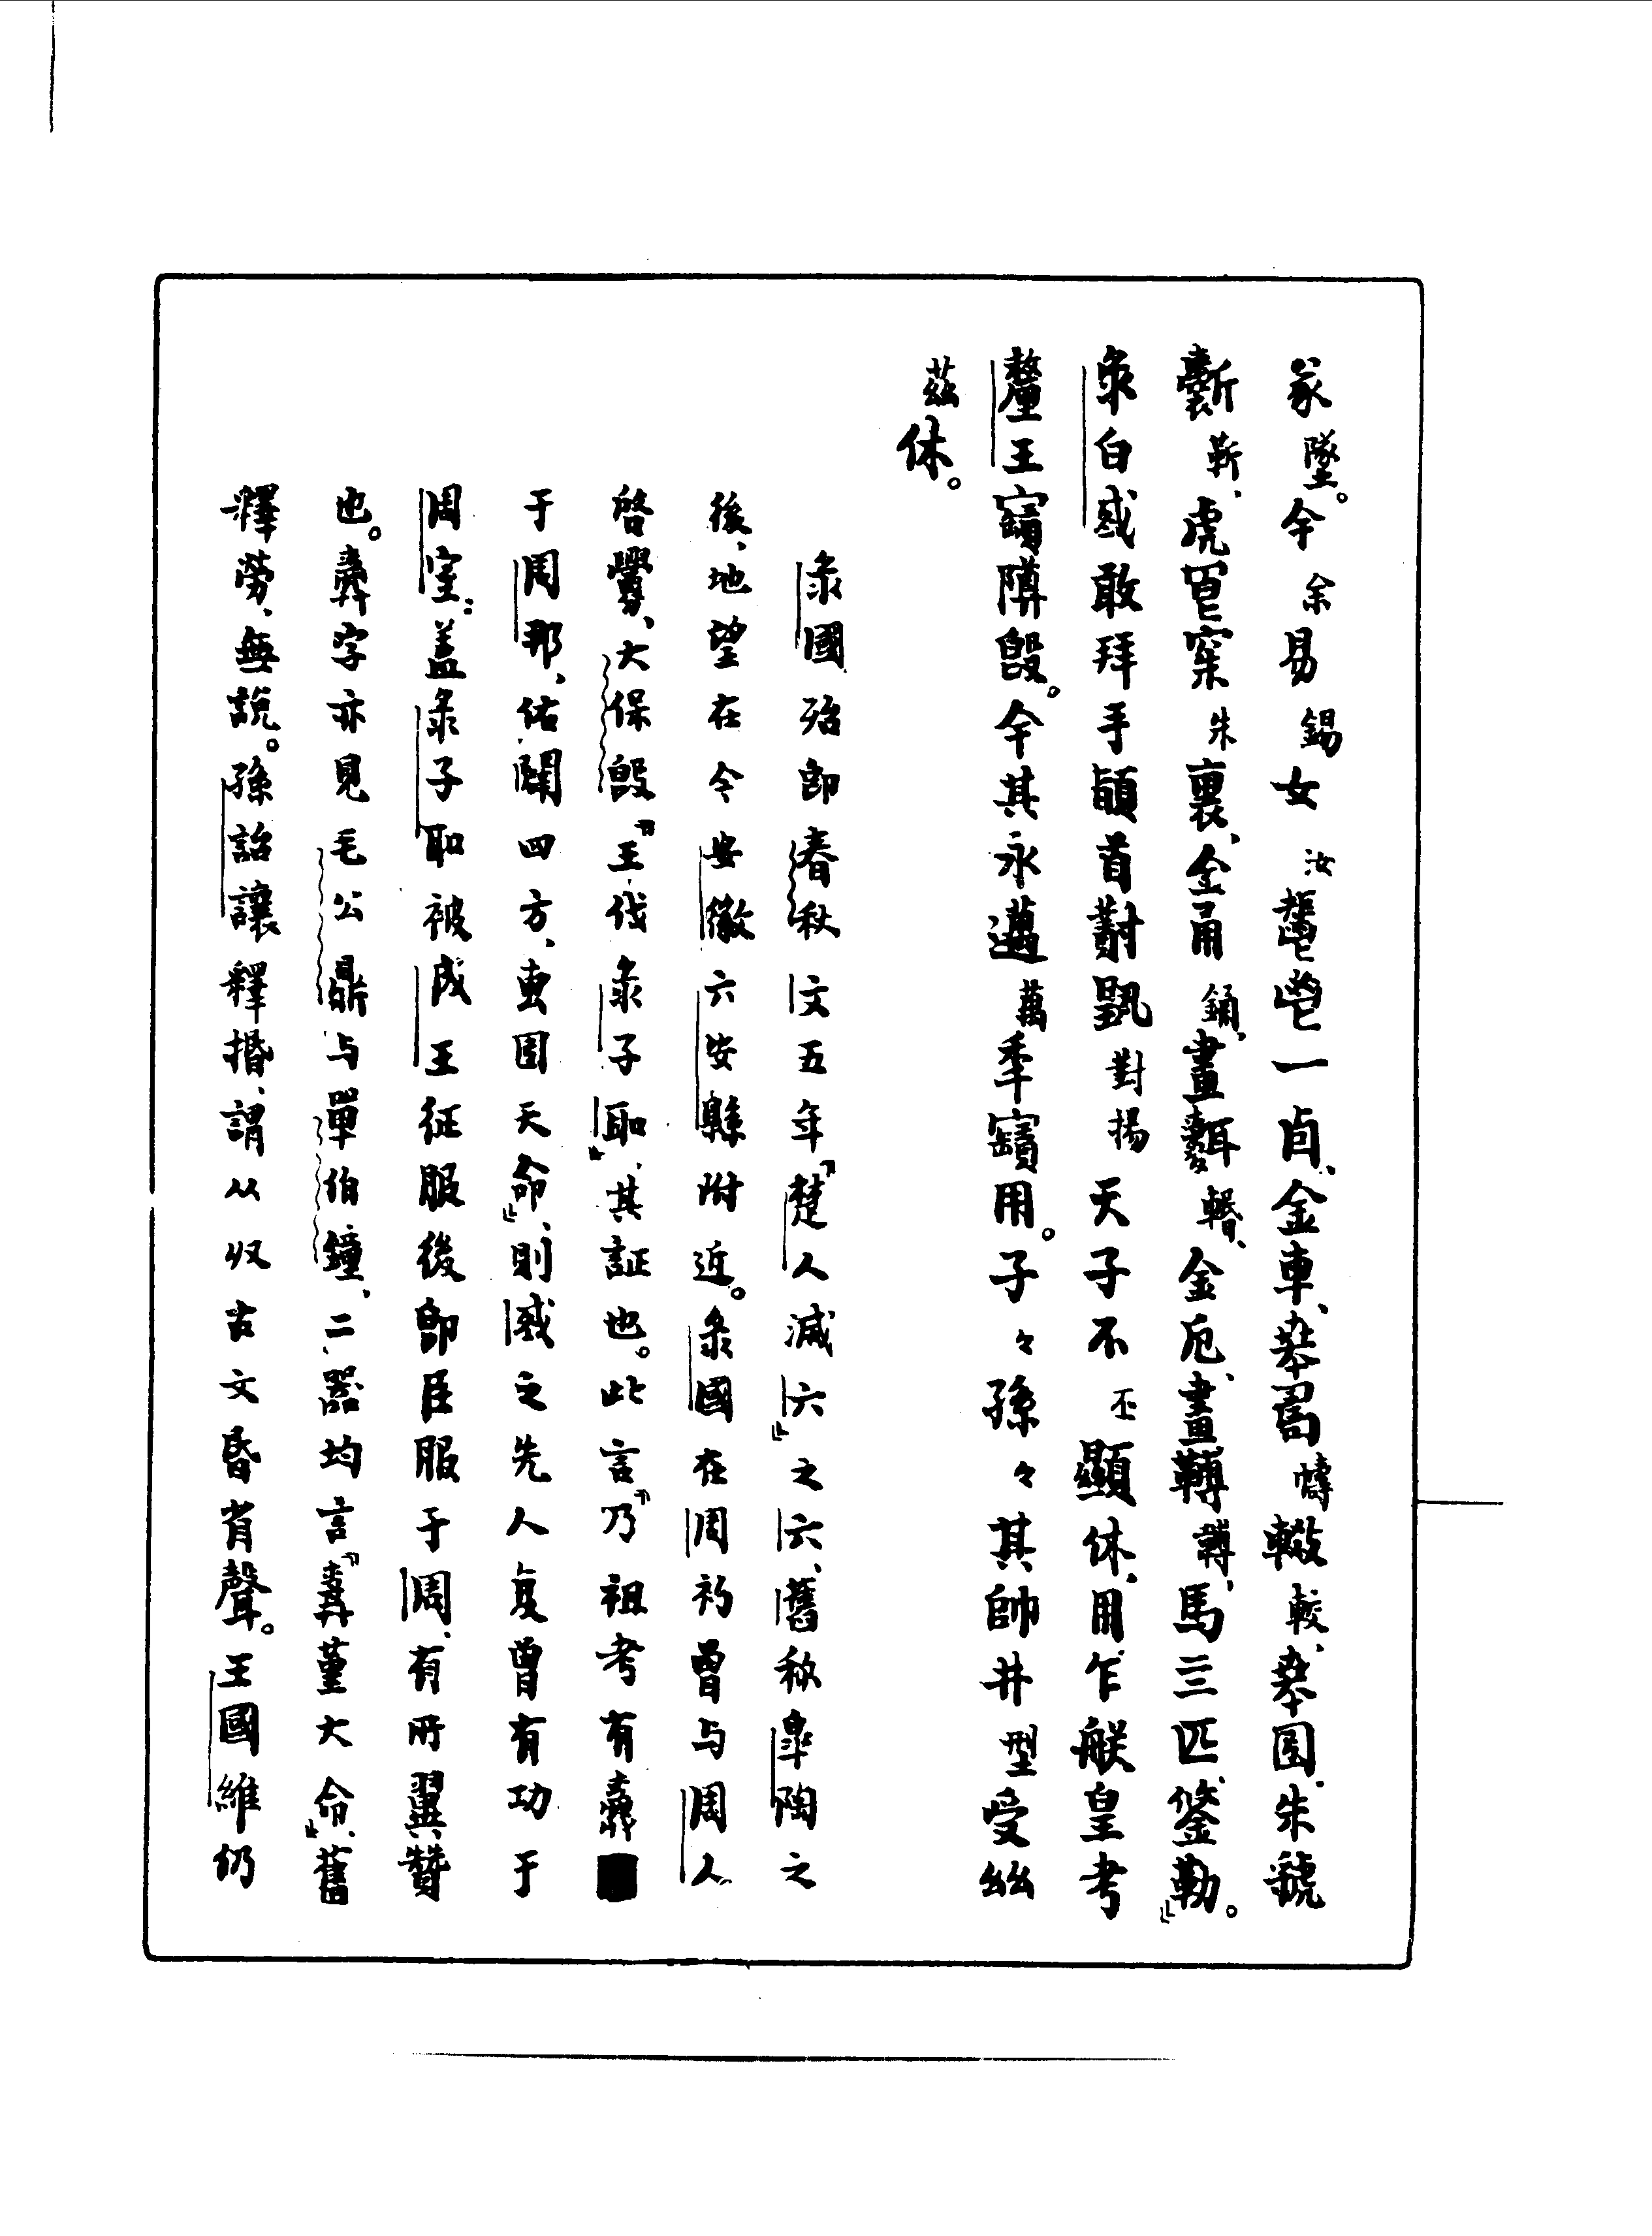 㒸墜。余易錫女汝鬯一卣、金車、幬較較、朱虢
靳、虎冟朱裏、金甬鋪、畫輯、金厄、畫轉、馬三匹、鋚勒。』
彔白㦰敢拜手𩒨首對揚天子不丕顯休、用乍皇考
釐王寶𣪘。余其永邁萬年寶用。子々孫々其帥井型受𢆶
茲休。
彔國殆即春秋文五年『楚人滅六』之六、舊称臯陶之
後、地望在今安徽六安縣附近。彔國在周初曾与周人
啓釁、大保𣪘『王伐彔子耶』、其証也。此言『乃祖考有
于周邦、佑闢四方、叀𢎛天命』、則㦰之先人复曾有功于
周室：蓋彔子耶被成王征服後即臣服于周、有所翼贊
也。字亦見毛公鼎与單伯鐘、二器均言『堇大命』、舊
釋勞、無說。孫詒讓釋捪、謂从収古文昏省聲。王國維仍